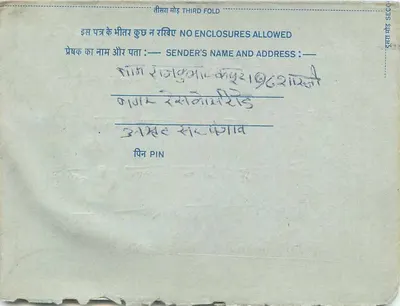 तीसरा मोड़ THIRD FOLD
इस पत्र के भीतर कुछ न रखिए NO ENCLOSURES ALLOWED
प्रेषक का नाम और पता :— SENDER'S NAME AND ADDRESS :—
राजकुमार कपूर
नगर
अमृतसर पंजाब
पिन PIN
दूसरा मोड़ SECO